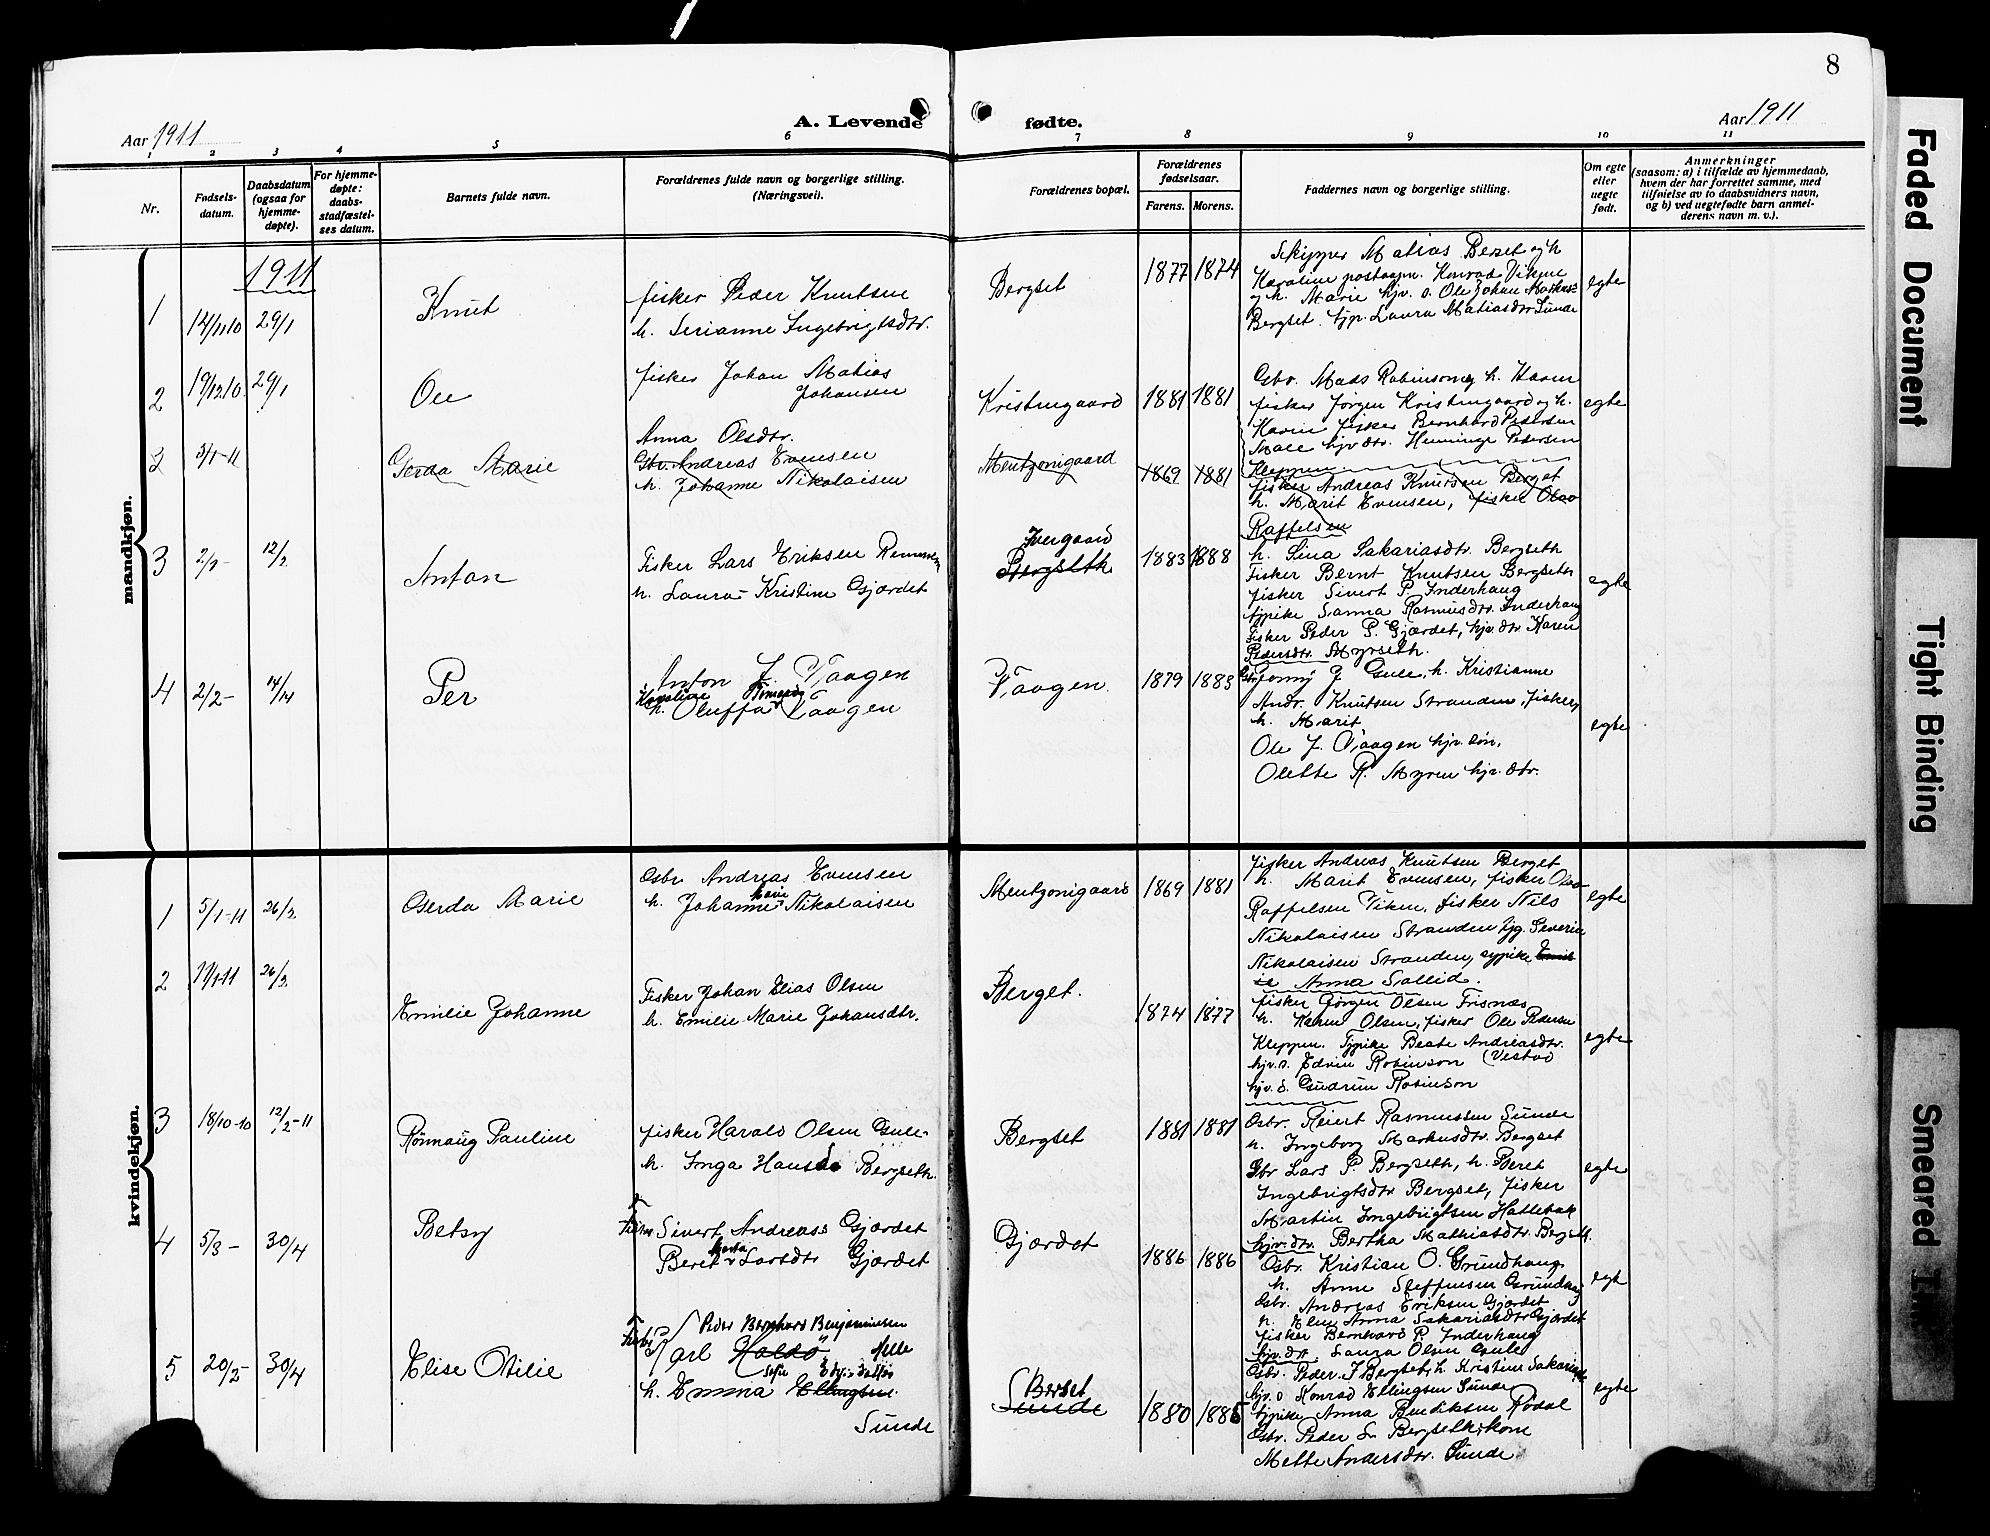 8
Aar 1911
A. Levende fødte.
Aar 1911
1 2 3 4 5 6 7 8 9 10 11
Nr.
Fødsels-
datum.
Daabsdatum
(ogsaa for
hjemme-
døpte).
For hjemme-
døpte:
daabs-
stadfæstel-
ses datum.
Barnets fulde navn.
Forældrenes fulde navn og borgerlige stilling.
(Næringsvei).
Forældrenes bopæl.
Forældrenes
fødselsaar.
Farens. Morens.
Faddernes navn og borgerlige stilling.
Om egte
eller
uegte
født.
Anmerkninger
(saasom: a) i tilfælde av hjemmedaab,
hvem der har forrettet samme, med
tilføielse av to daabsvidners navn,
og b) ved uegtefødte barn anmel-
derens navn m. v.).
mandkjøn.
1911
1
14/11 10
29/1
Knut
fisker Peder Knutsen
h. Serianne Ingebrigtsdtr.
Bergset
1877 1874
Skipper Matias Berset og h
Karoline postaapn. Konrad Viken
og h. Marie hjv. s. Ole Johan Markus
Bergset. tjp. Laura Matiasdtr Sunde
egte
2
19/12 10.
29/1
Ole
fisker Johan Matias
Johansen
Anna Olsdtr.
Kristengaard
1881 1881
Gbr. Mads Robinson og h. Karen
fisker Jørgen Kristengaard og h.
Karen fisker Bernhard Pedersen
Male hjv dtr. Henninge Pedersen
Kleppen
egte
3
5/1-11
Gerda Marie
Gbr. Andreas Evensen
h. Johanne Nikolaisen
Mentzonigaard
1869 1881
fisker Andreas Knutsen Berget
h. Marit Evensen, fisker Olav
Raffelsen
3
2/1-
12/2
Anton
Fisker Lars Eriksen Remmem
h. Laura Kristine Gjærdet
Ivergaard
Bergseth
1883 1888
h. Sina Sakariasdtr. Bergseth
Fisker Bernt Knutsen Bergseth
fisker Sivert P. Inderhaug
tjpike Sanna Rasmusdtr. Inderhaug
Fisker Peder P. Gjærdet, hjv. dtr Karen
Pedersdtr. Myrseth.
egte
4
2/2-
14/4
Per
Anton J. Vaagen
Karoline Rimardy
h. Oluffa Vaagen
Vaagen.
1879 1883
Gbr. Jonny J Gule, h. Kristianne
Andr. Knutsen Stranden, fisker,
h. Marit
Ole J. Vaagen hjv. søn,
Olette R. Myren hjv. dtr.
egte
kvindekjøn.
1
5/1-11
26/3
Gerda Marie
Gbr Andreas Evensen
Marie
h. Johanne Nikolaisen
Mentzonigaard
1869 1881
fisker Andreas Knutsen Berget
h. Marit Evensen, fisker Olav
Raffelsen Viken. fisker Nils
Nikolaisen Stranden tjg. Severin
Nikolaisen Stranden, tjpike Emil
ie Anna Sollid.
egte
2
17/1-11
26/3
Emilie Johanne
Fisker Johan Elias Olsen
h. Emilie Marie Johansdtr.
Berget.
1874 1877
fisker Jørgen Olsen Trisnæs
h. Karen Olsen, fisker Ole Pedersen
Kleppen. Tjpike Beate Andreasdtr.
hjv. s. Edvin Robinson (Vestad
hjv. d. Gudrun Robinson
egte
3
18/10-10
12/2-11
Rønnaug Pauline
fisker Harald Olsen Gule
h. Inga Hansd. Bergseth.
Bergset
1881 1881
Gbr. Reiert Rasmussen Sunde
h. Ingeborg Markusdtr. Bergset
Gbr Lars P. Bergseth, h. Beret
Ingebrigtsdtr Bergset, fisker
Martin Ingebrigtsen Hallebak
hjv. dtr. Bertha Mathiasdtr. Bergseth.
egte
4
5/3-
30/4
Betsy
Fisker Sivert Andreass Gjærdet
Marta
Beret Larsdtr Gjærdet
Gjærdet
1886 1886
Gbr. Kristian O. Grundhaug.
h. Anne Steffensen Grundhaug
Gbr. Andreas Eriksen Gjærdet
h. Elen Anna Sakariasdtr Gjærdet
fisker Bernhard P. Inderhaug
hjv. dtr. Laura Olsen Gule
egte
5
20/2-
30/4
Elise Otilie
Peder Bernhard Benjaminsen
Fisker Karl Haldo
Sofie
h. Emma Ellingsen
Sunde
Berset
Sunde
1880 1885
Gbr. Peder J Bergset, h. Kristine Sakarias
hjv. s Konrad Ellingsen Sunde
tjpike Anna Bendiksen Rødal
Gbr. Peder S. Bergseth, kone
Mette Andersdtr. Sunde
egte
Faded Document
Tight Binding
Smeared